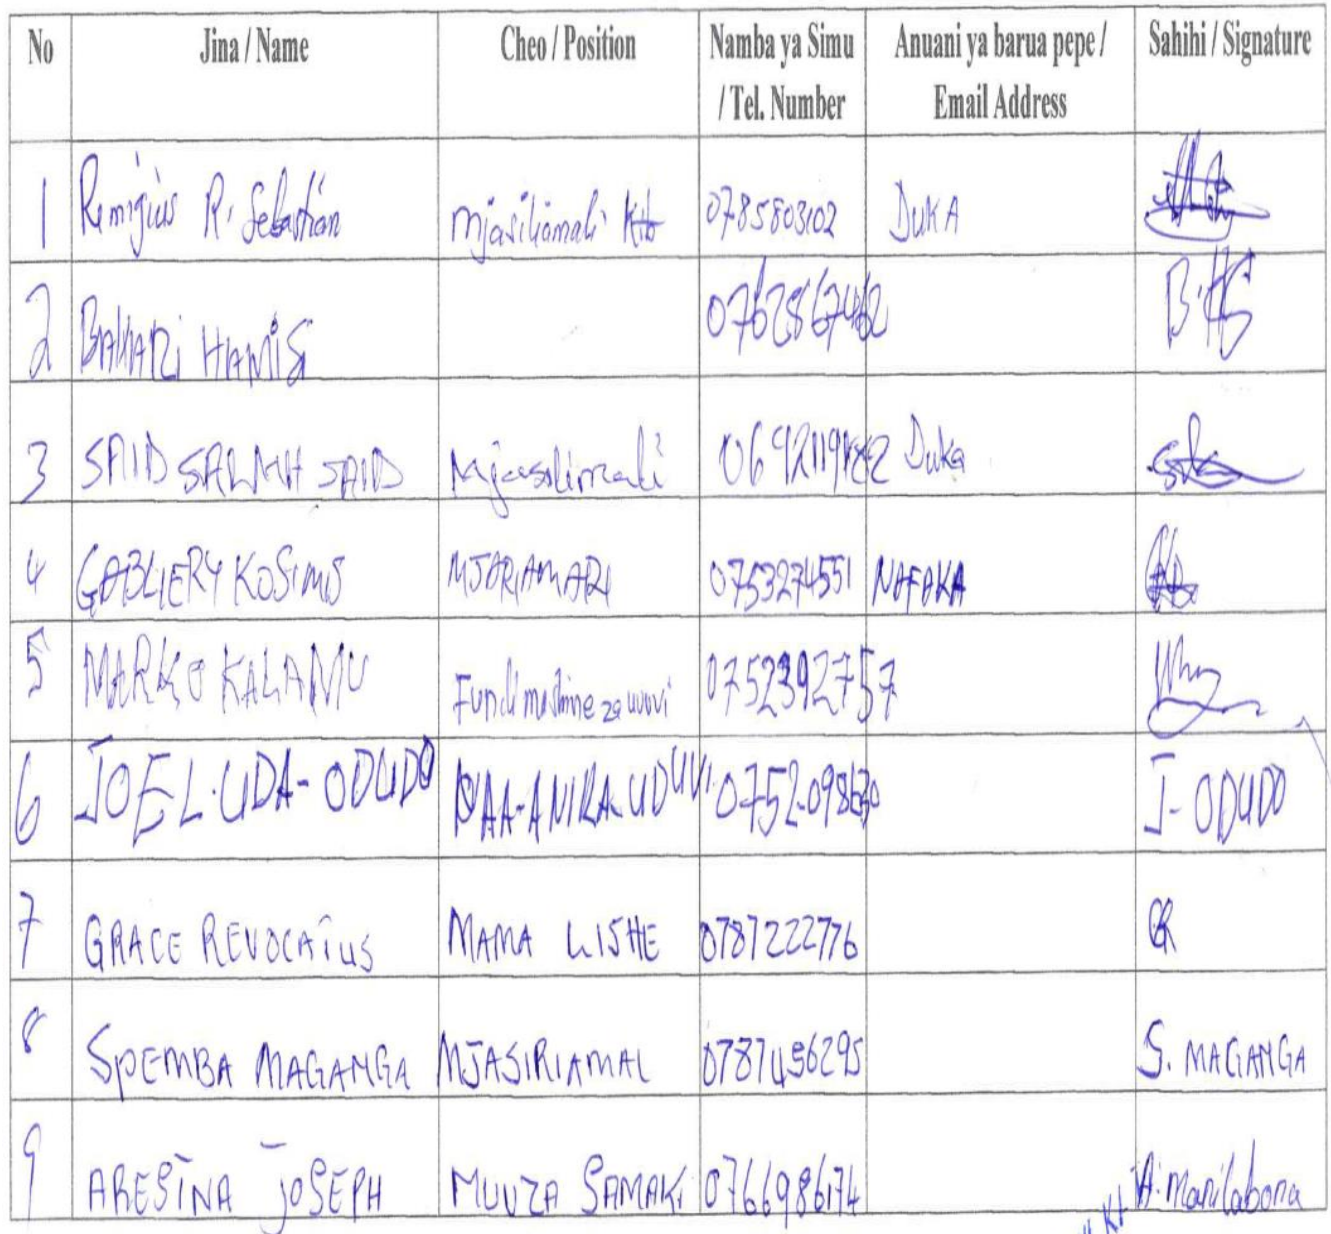 No Jina / Name Cheo / Position Namba ya Simu / Tel. Number Anuani ya barua pepe / Email Address Sahihi / Signature
1 Remigius R. Sebastian Mjasiliamali 0785803102 DUKA
2 BAKARI HAMISI 0762867462 B.HS
3 SAID SALMH SAID Mjasilimali Duka
4 GABLIERY KOSIMS MJARIAMARI 0753274551 NAFAKA
5 MARKO KALAMU Fundi mashine za uvuvi 0752392757
6 JOEL.UDA-ODUDO J-ODUDO
7 GRACE REVOCATUS MAMA LISHE 0787222776 GR
8 SPEMBA MAGANGA MJASIRIAMAL 0787456295 S. MAGANGA
9 ARESTINA JOSEPH MUUZA SAMAKI 0766986174